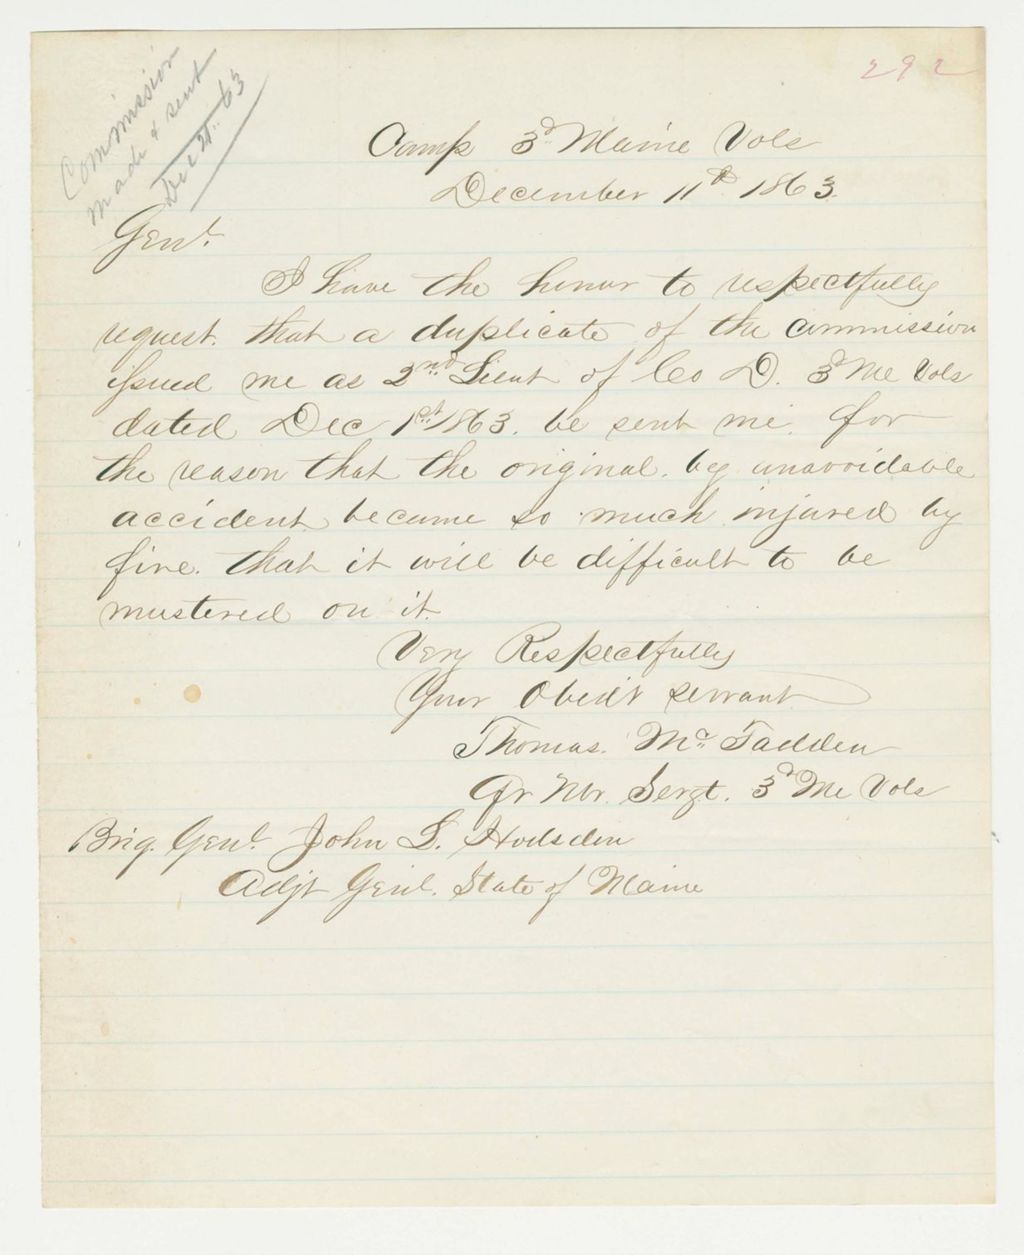 292
Commission
made & sent
Dec 21. 63
Camp 3d Maine Vols
December 11th 1863.
Genl.
I have the honor to respectfully
request. that a duplicate of the commission
issued me as 2nd Lieut of Co D. 3d Me Vols
dated Dec 1st 1863. be sent me. for
the reason that the original. by unavoidable
accident became so much injured by
fire. that it will be difficult to be
mustered on it.
Very Respectfully
Your Obedt servant
Thomas. Mc Fadden
Qr Mr. Sergt. 3d Me Vols
Brig. Genl. John L. Hodsden
Adjt Genl. State of Maine